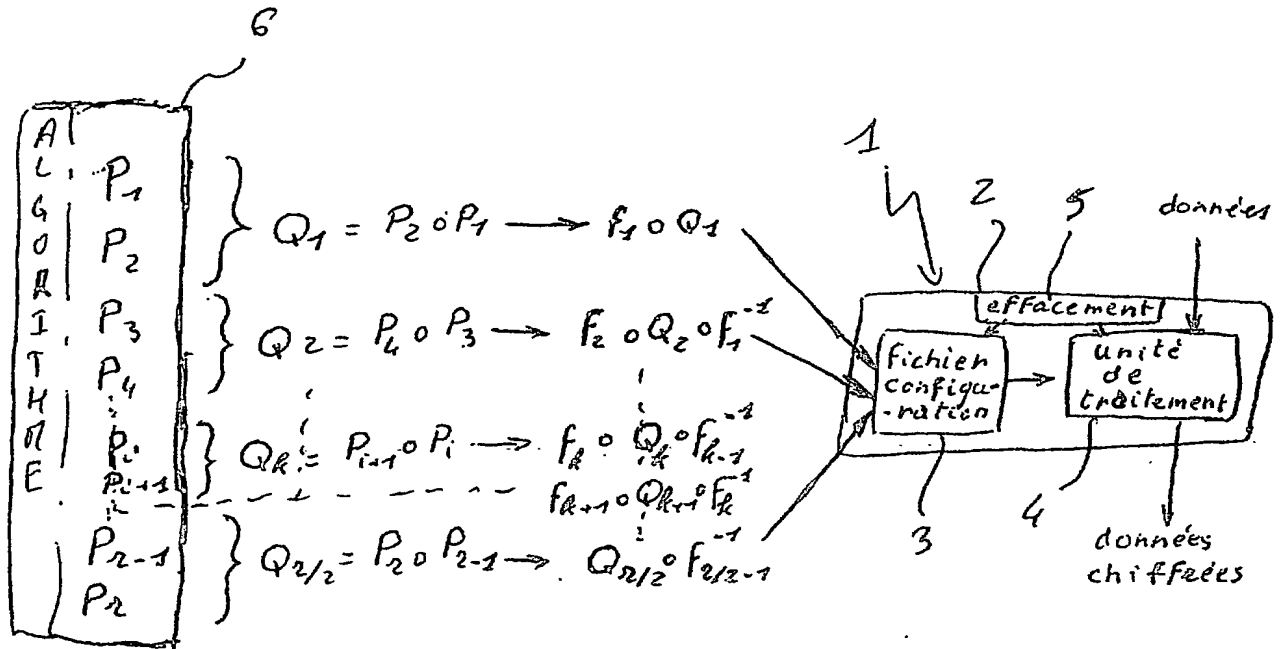 6
ALGORITHME
P₁
P₂
P₃
P₄
Pᵢ
Pᵢ₊₁
Pᵣ₋₁
Pᵣ
Q₁ = P₂ ∘ P₁ → f₁ ∘ Q₁
Q₂ = P₄ ∘ P₃ → f₂ ∘ Q₂ ∘ f₁⁻¹
Qₖ = Pᵢ₊₁ ∘ Pᵢ → fₖ ∘ Qₖ ∘ fₖ₋₁⁻¹
fₖ₊₁ ∘ Qₖ₊₁ ∘ fₖ⁻¹
Qᵣ/₂ = Pᵣ ∘ Pᵣ₋₁ → Qᵣ/₂ ∘ fᵣ/₂₋₁⁻¹
1
2
5
données
effacement
fichier
configu-
-ration
unité
de
traitement
3
4
données
chiffrées